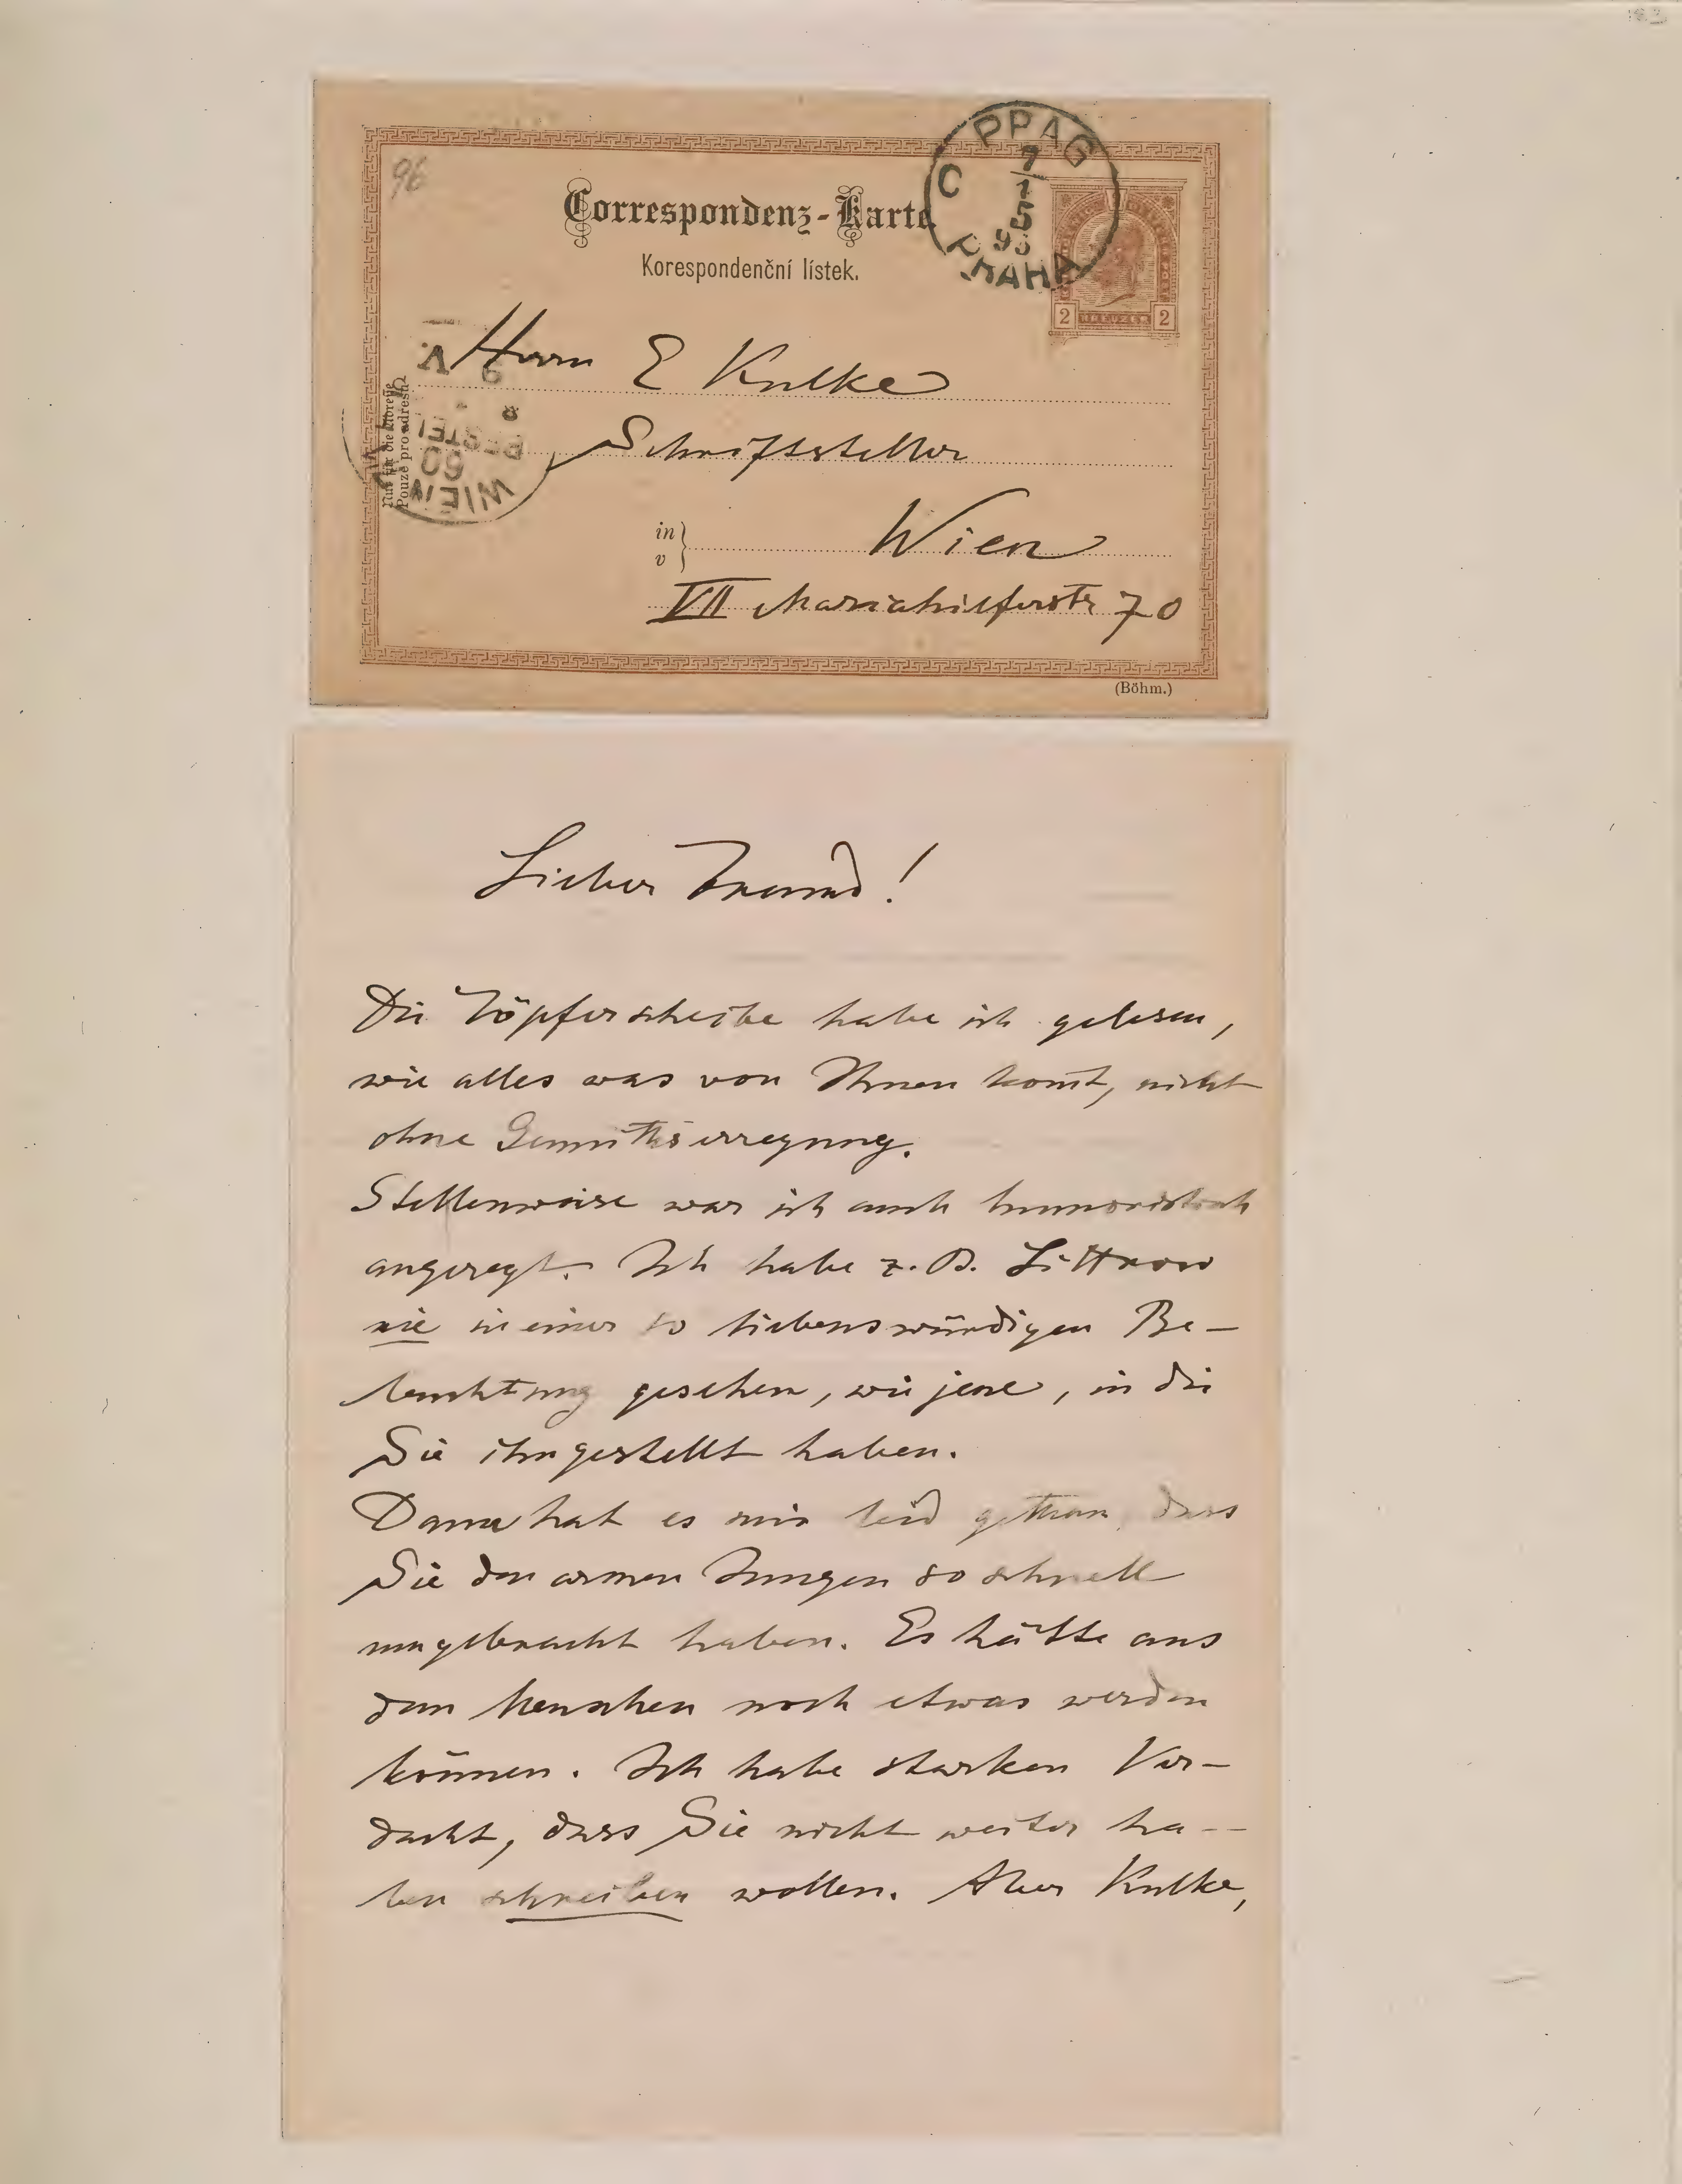 96
PRAG
C
7/1
5
95
PRAHA
Correspondenz-Karte
Korespondenční lístek.
2 KREUZER 2
Herrn E Kulke
Schriftsteller
in
v
Wien
VII Mariahilferstr 70
Nur für die Adresse
Pouze pro adresu
WIEN
60
BESTELLT
8
9 V
(Böhm.)
Lieber Freund!
Die Töpferscheibe habe ich gelesen,
wie alles was von Ihnen kom̄t, nicht
ohne Gemüthserregung.
Stellenweise war ich auch humoristisch
angeregt. Ich habe z. B. Littrow
nie in einer so liebenswürdigen Be-
leuchtung gesehen, wie jene, in die
Sie ihn gestellt haben.
Dann hat es mir leid gethan, dass
Sie den armen Jungen so schnell
umgebracht haben. Es hätte aus
dem Menschen noch etwas werden
können. Ich habe starken Ver-
dacht, dass Sie nicht weiter ha-
ben schreiben wollen. Aber Kulke,